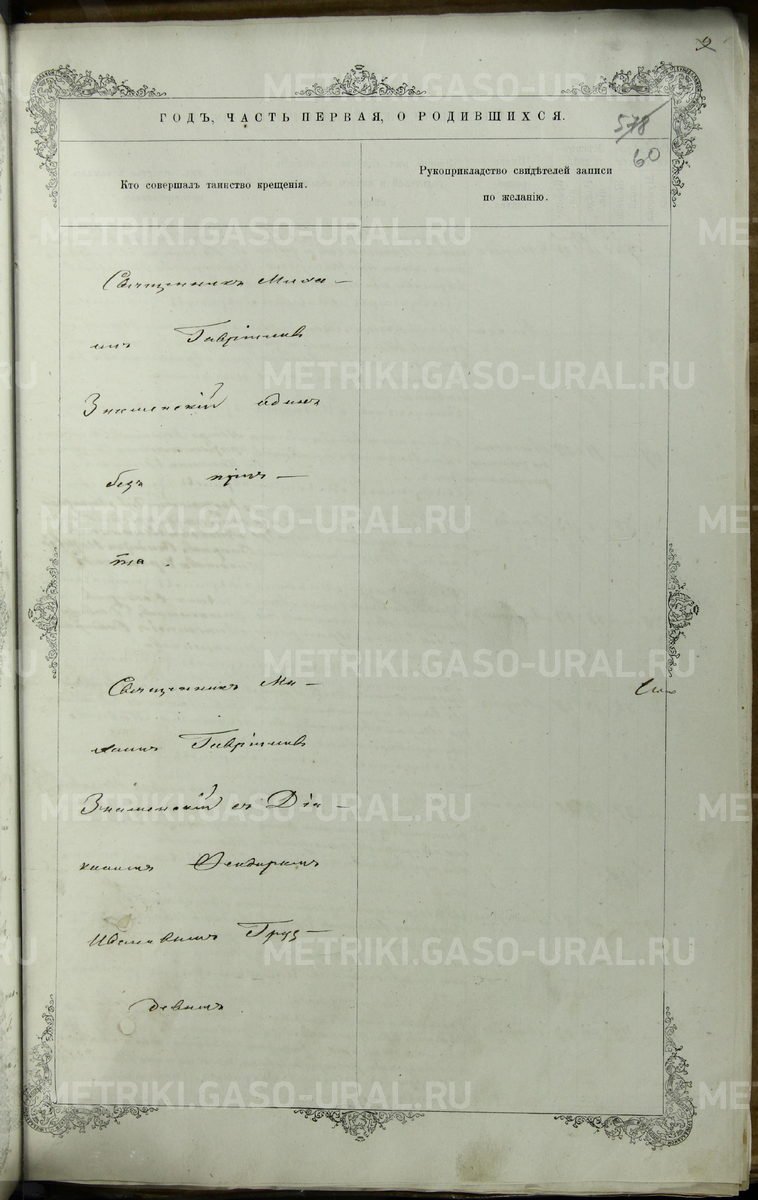 2
ГОДЪ, ЧАСТЬ ПЕРВАЯ, О РОДИВШИХСЯ.
578
60
Кто совершалъ таинство крещенія.
Рукоприкладство свидѣтелей записи
по желанію.
Священникъ Миха-
илъ Гавріиловъ
Знаменскій одинъ
безъ прич-
та.
Священникъ Ми-
хаилъ Гавріиловъ
Знаменскій съ Діа-
кономъ
Ивановымъ Груз-
девымъ
METRIKI.GASO-URAL.RU